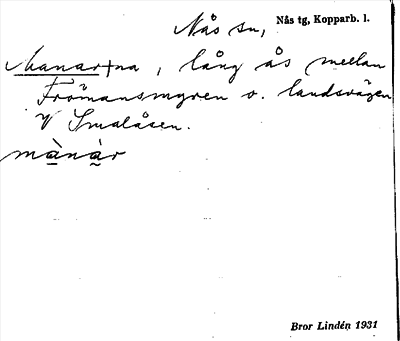 Nås sn, Nås tg, Kopparb. l.
Manar+na, lång ås mellan
Frömansmyren o. landsvägen
V Smalåsen.
mànàr
Bror Lindén 1931